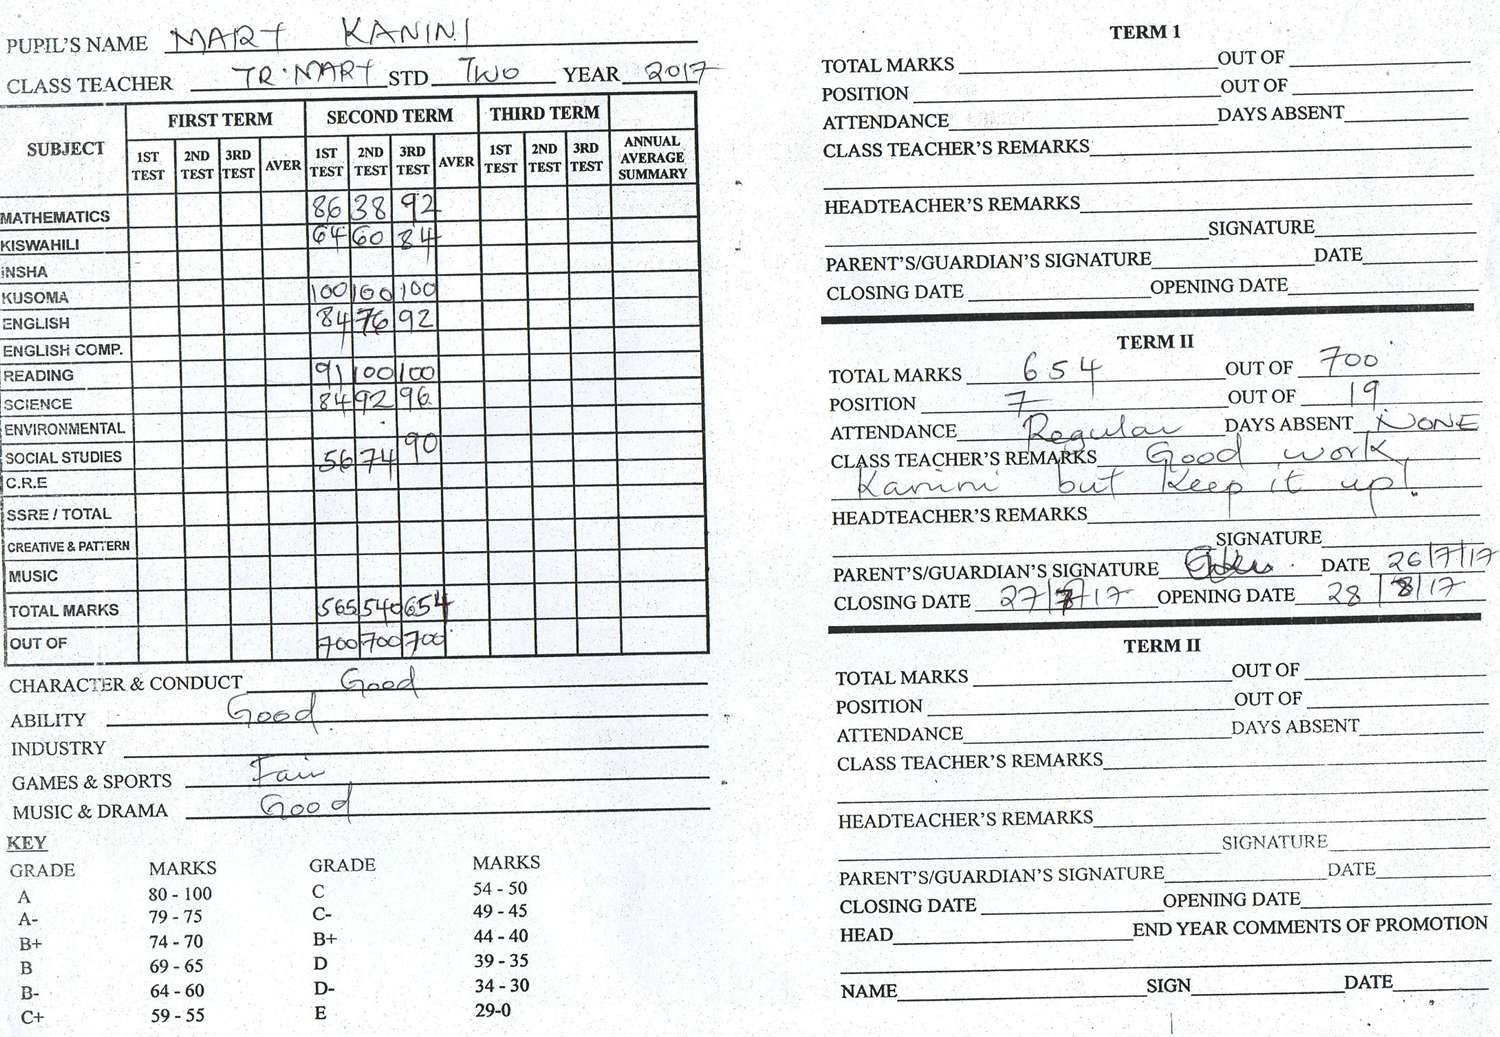 PUPIL'S NAME MARY KANINI
CLASS TEACHER TR. MARY STD TWO YEAR 2017
SUBJECT FIRST TERM SECOND TERM THIRD TERM
1ST TEST 2ND TEST 3RD TEST AVER 1ST TEST 2ND TEST 3RD TEST AVER 1ST TEST 2ND TEST 3RD TEST ANNUAL AVERAGE SUMMARY
MATHEMATICS 86 38 92
KISWAHILI 64 60 84
INSHA
KUSOMA 100 100 100
ENGLISH 84 76 92
ENGLISH COMP.
READING 91 100 100
SCIENCE 84 92 96
ENVIRONMENTAL
SOCIAL STUDIES 56 74 90
C.R.E
SSRE / TOTAL
CREATIVE & PATTERN
MUSIC
TOTAL MARKS 565 540 654
OUT OF 700 700 700
CHARACTER & CONDUCT Good
ABILITY Good
INDUSTRY
GAMES & SPORTS Fair
MUSIC & DRAMA Good
KEY
GRADE MARKS GRADE MARKS
A 80 - 100 C 54 - 50
A- 79 - 75 C- 49 - 45
B+ 74 - 70 B+ 44 - 40
B 69 - 65 D 39 - 35
B- 64 - 60 D- 34 - 30
C+ 59 - 55 E 29-0
TERM 1
TOTAL MARKS OUT OF
POSITION OUT OF
ATTENDANCE DAYS ABSENT
CLASS TEACHER'S REMARKS
HEADTEACHER'S REMARKS
SIGNATURE
PARENT'S/GUARDIAN'S SIGNATURE DATE
CLOSING DATE OPENING DATE
TERM II
TOTAL MARKS 654 OUT OF 700
POSITION 7 OUT OF 19
ATTENDANCE Regular DAYS ABSENT NONE
CLASS TEACHER'S REMARKS Good work
Kanini but keep it up!
HEADTEACHER'S REMARKS
SIGNATURE
PARENT'S/GUARDIAN'S SIGNATURE DATE 26/7/17
CLOSING DATE 27/7/17 OPENING DATE 28/8/17
TERM II
TOTAL MARKS OUT OF
POSITION OUT OF
ATTENDANCE DAYS ABSENT
CLASS TEACHER'S REMARKS
HEADTEACHER'S REMARKS
SIGNATURE
PARENT'S/GUARDIAN'S SIGNATURE DATE
CLOSING DATE OPENING DATE
HEAD END YEAR COMMENTS OF PROMOTION
NAME SIGN DATE